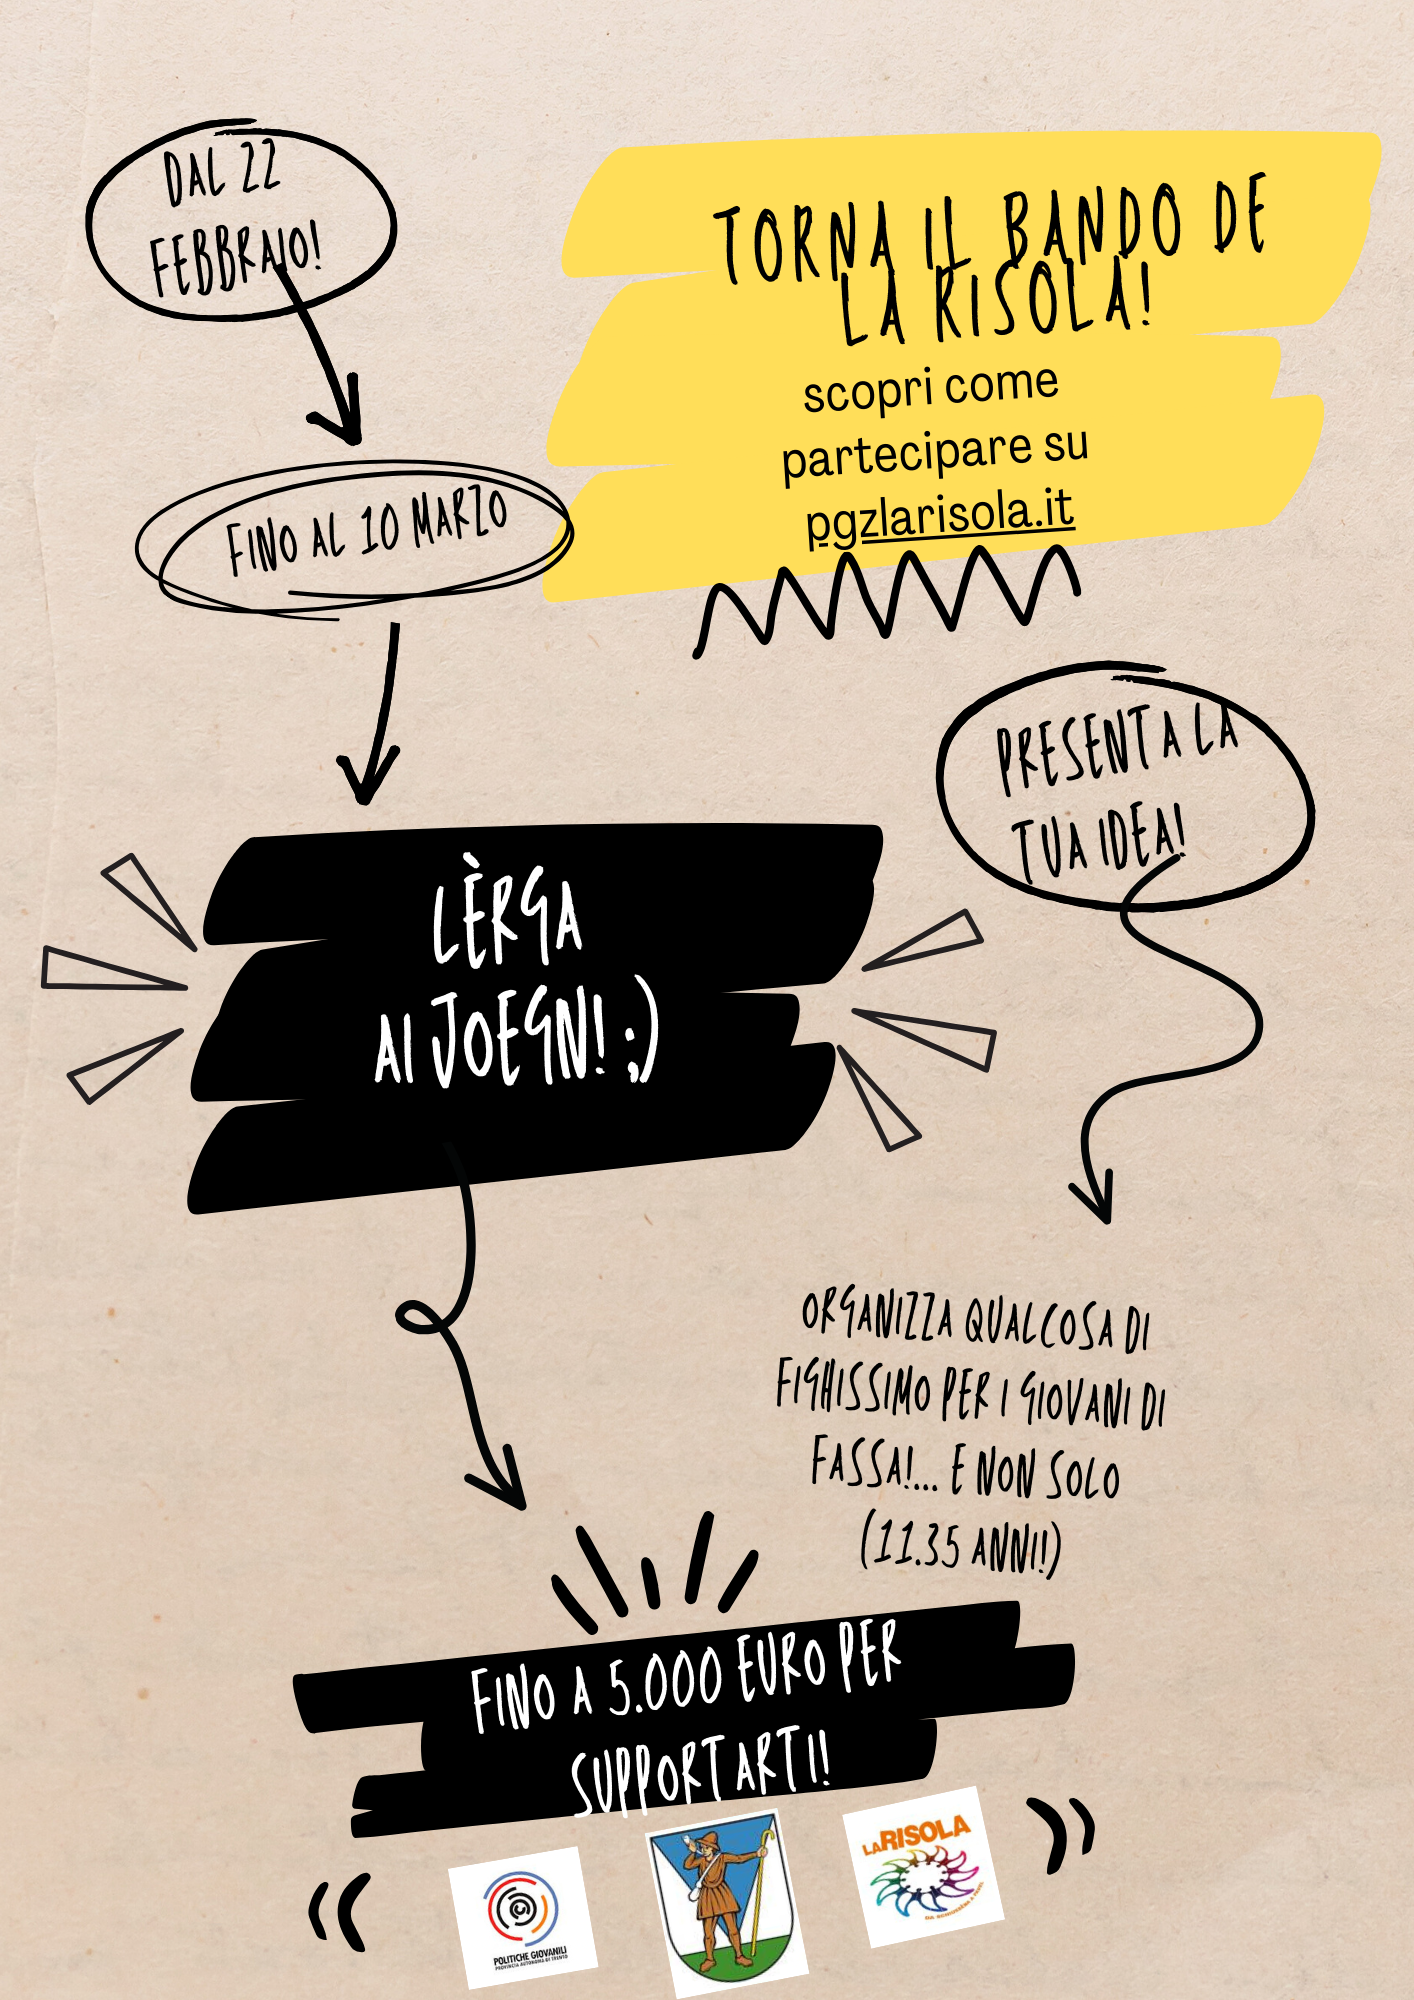 DAL 22
FEBBRAIO!
TORNA IL BANDO DE
LA RISOLA!
scopri come
partecipare su
pgzlarisola.it
FINO AL 10 MARZO
PRESENTA LA
TUA IDEA!
LÈRGA
AI JOEGN! ;)
ORGANIZZA QUALCOSA DI
FIGHISSIMO PER I GIOVANI DI
FASSA!... E NON SOLO
(11.35 ANNI!)
FINO A 5.000 EURO PER
SUPPORTARTI!
POLITICHE GIOVANILI
PROVINCIA AUTONOMA DI TRENTO
LA RISOLA